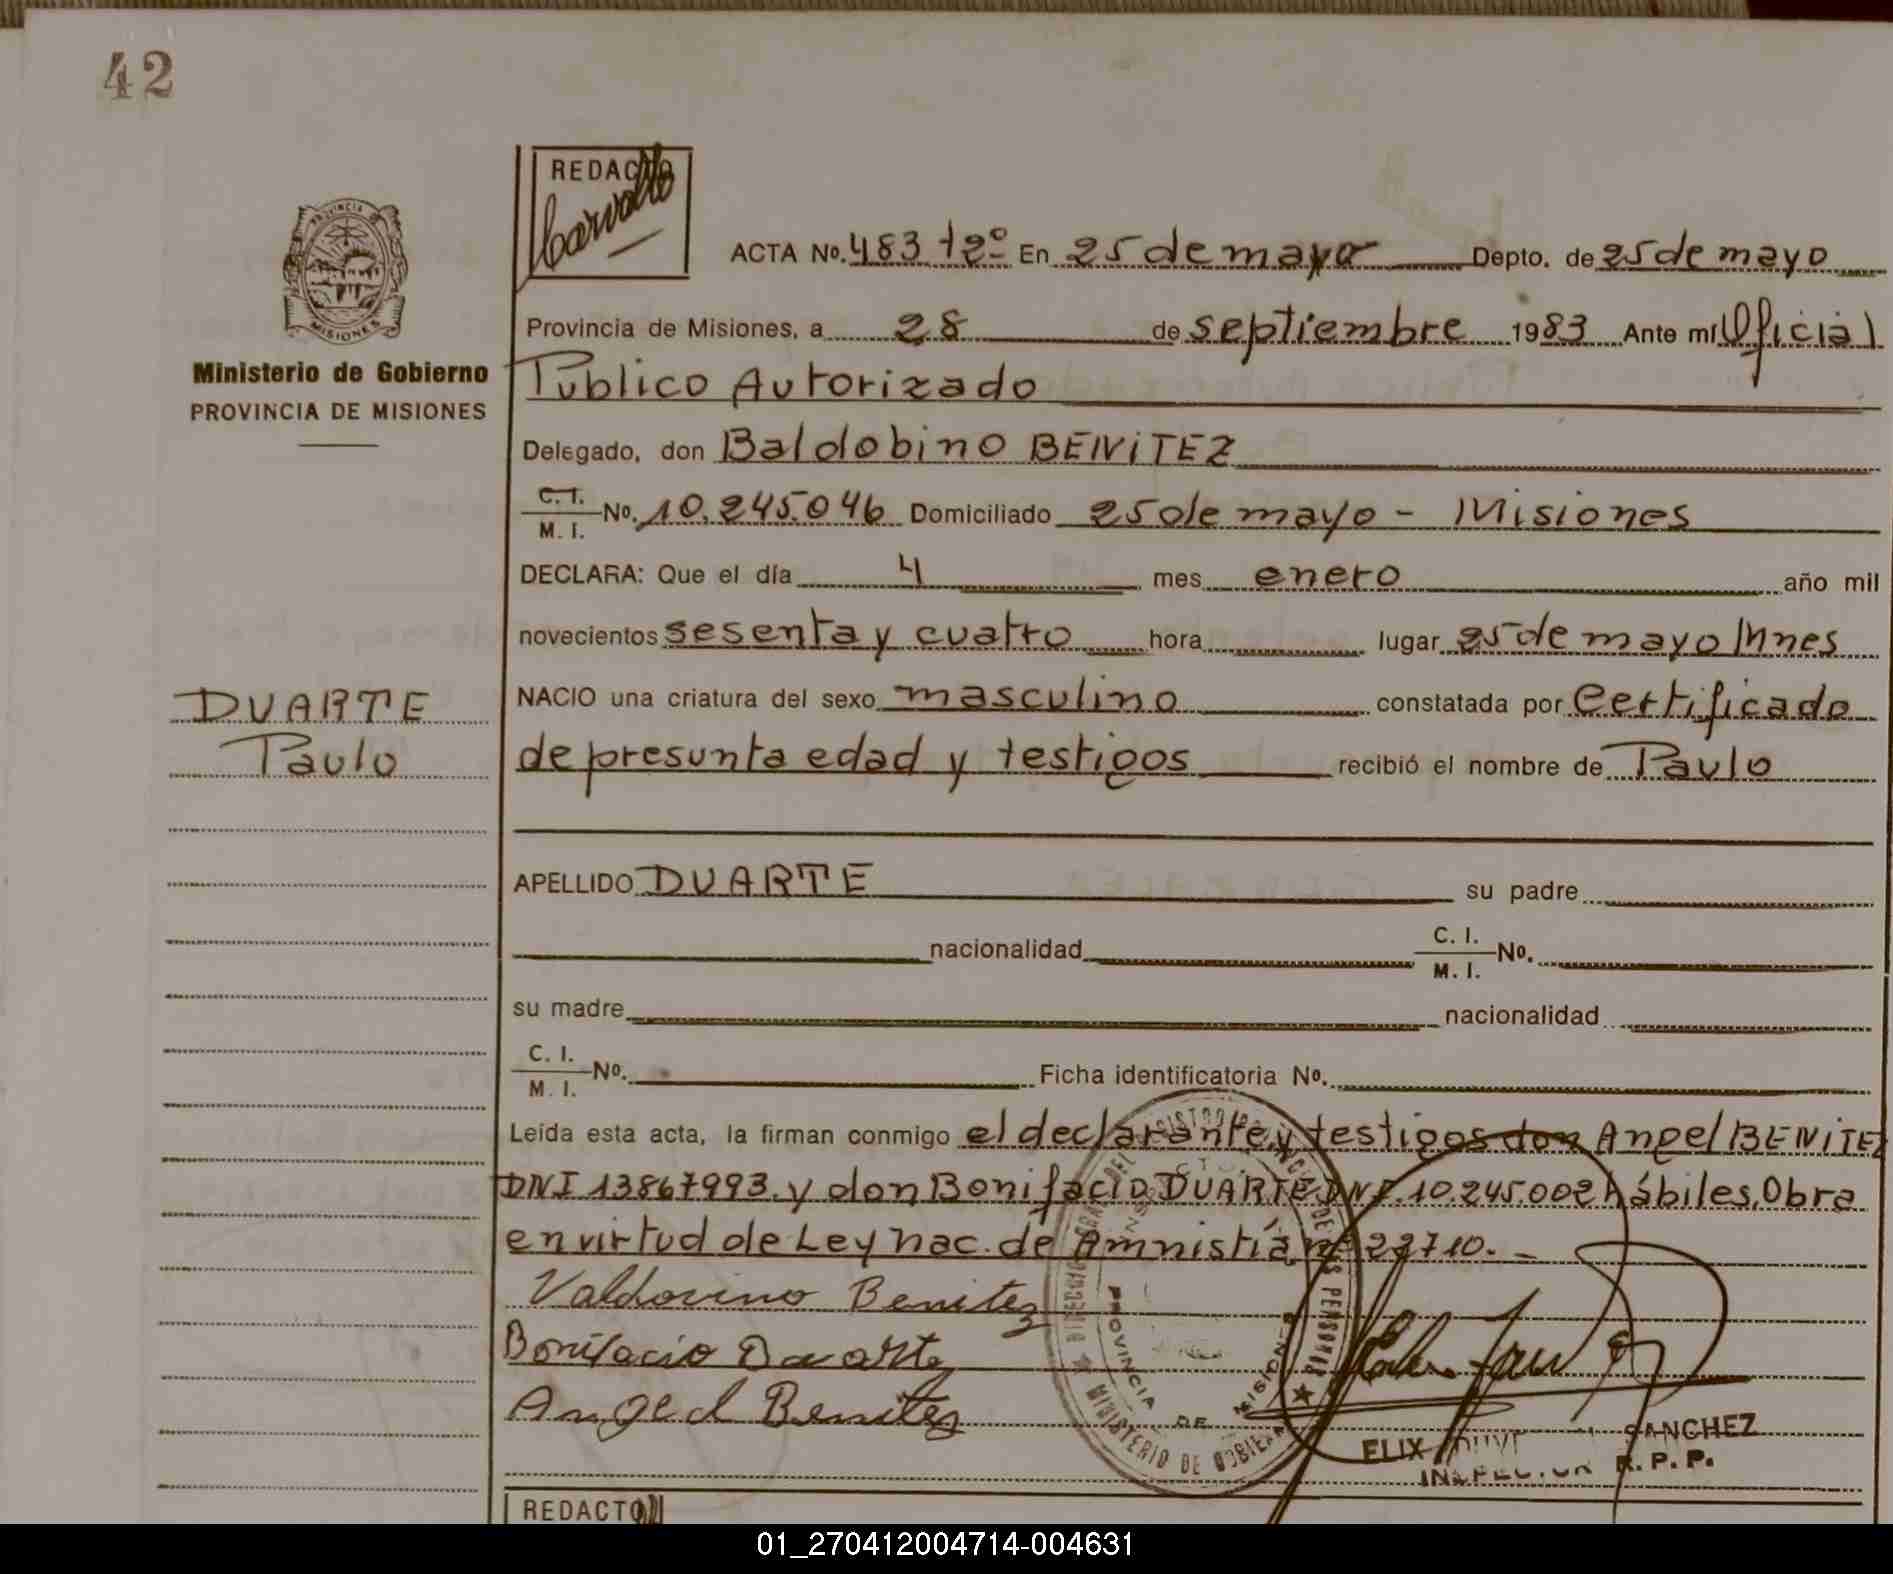 42
REDACTO
Carvallo
PROVINCIA DE
MISIONES
Ministerio de Gobierno
PROVINCIA DE MISIONES
ACTA No. 483 t2º En 25 de mayo Depto. de 25 de mayo
Provincia de Misiones, a 28 de septiembre 1983 Ante mí Oficial
Publico Autorizado
Delegado, don Baldobino BENITEZ
C. I. / M. I. No. 10.245.046 Domiciliado 25 de mayo - Misiones
DECLARA: Que el día 4 mes enero año mil
novecientos sesenta y cuatro hora lugar 25 de mayo Mnes
DUARTE NACIO una criatura del sexo masculino constatada por Certificado
Paulo de presunta edad y testigos recibió el nombre de Paulo
APELLIDO DUARTE su padre
nacionalidad C. I. / M. I. No.
su madre nacionalidad
C. I. / M. I. No. Ficha identificatoria No.
Leída esta acta, la firman conmigo el declarante y testigos don Angel BENITEZ
DNI 13867993. y don Bonifacio DUARTE DNI. 10.245.002 hábiles. Obra
en virtud de Ley nac. de Amnistía nº 22710.-
Valdovino Benitez
Bonifacio Duarte
Angel Benitez
PROVINCIA DE MISIONES
MINISTERIO DE GOBIERNO
ELIX SANCHEZ
INSPECTOR R. P. P.
REDACTO
01_270412004714-004631